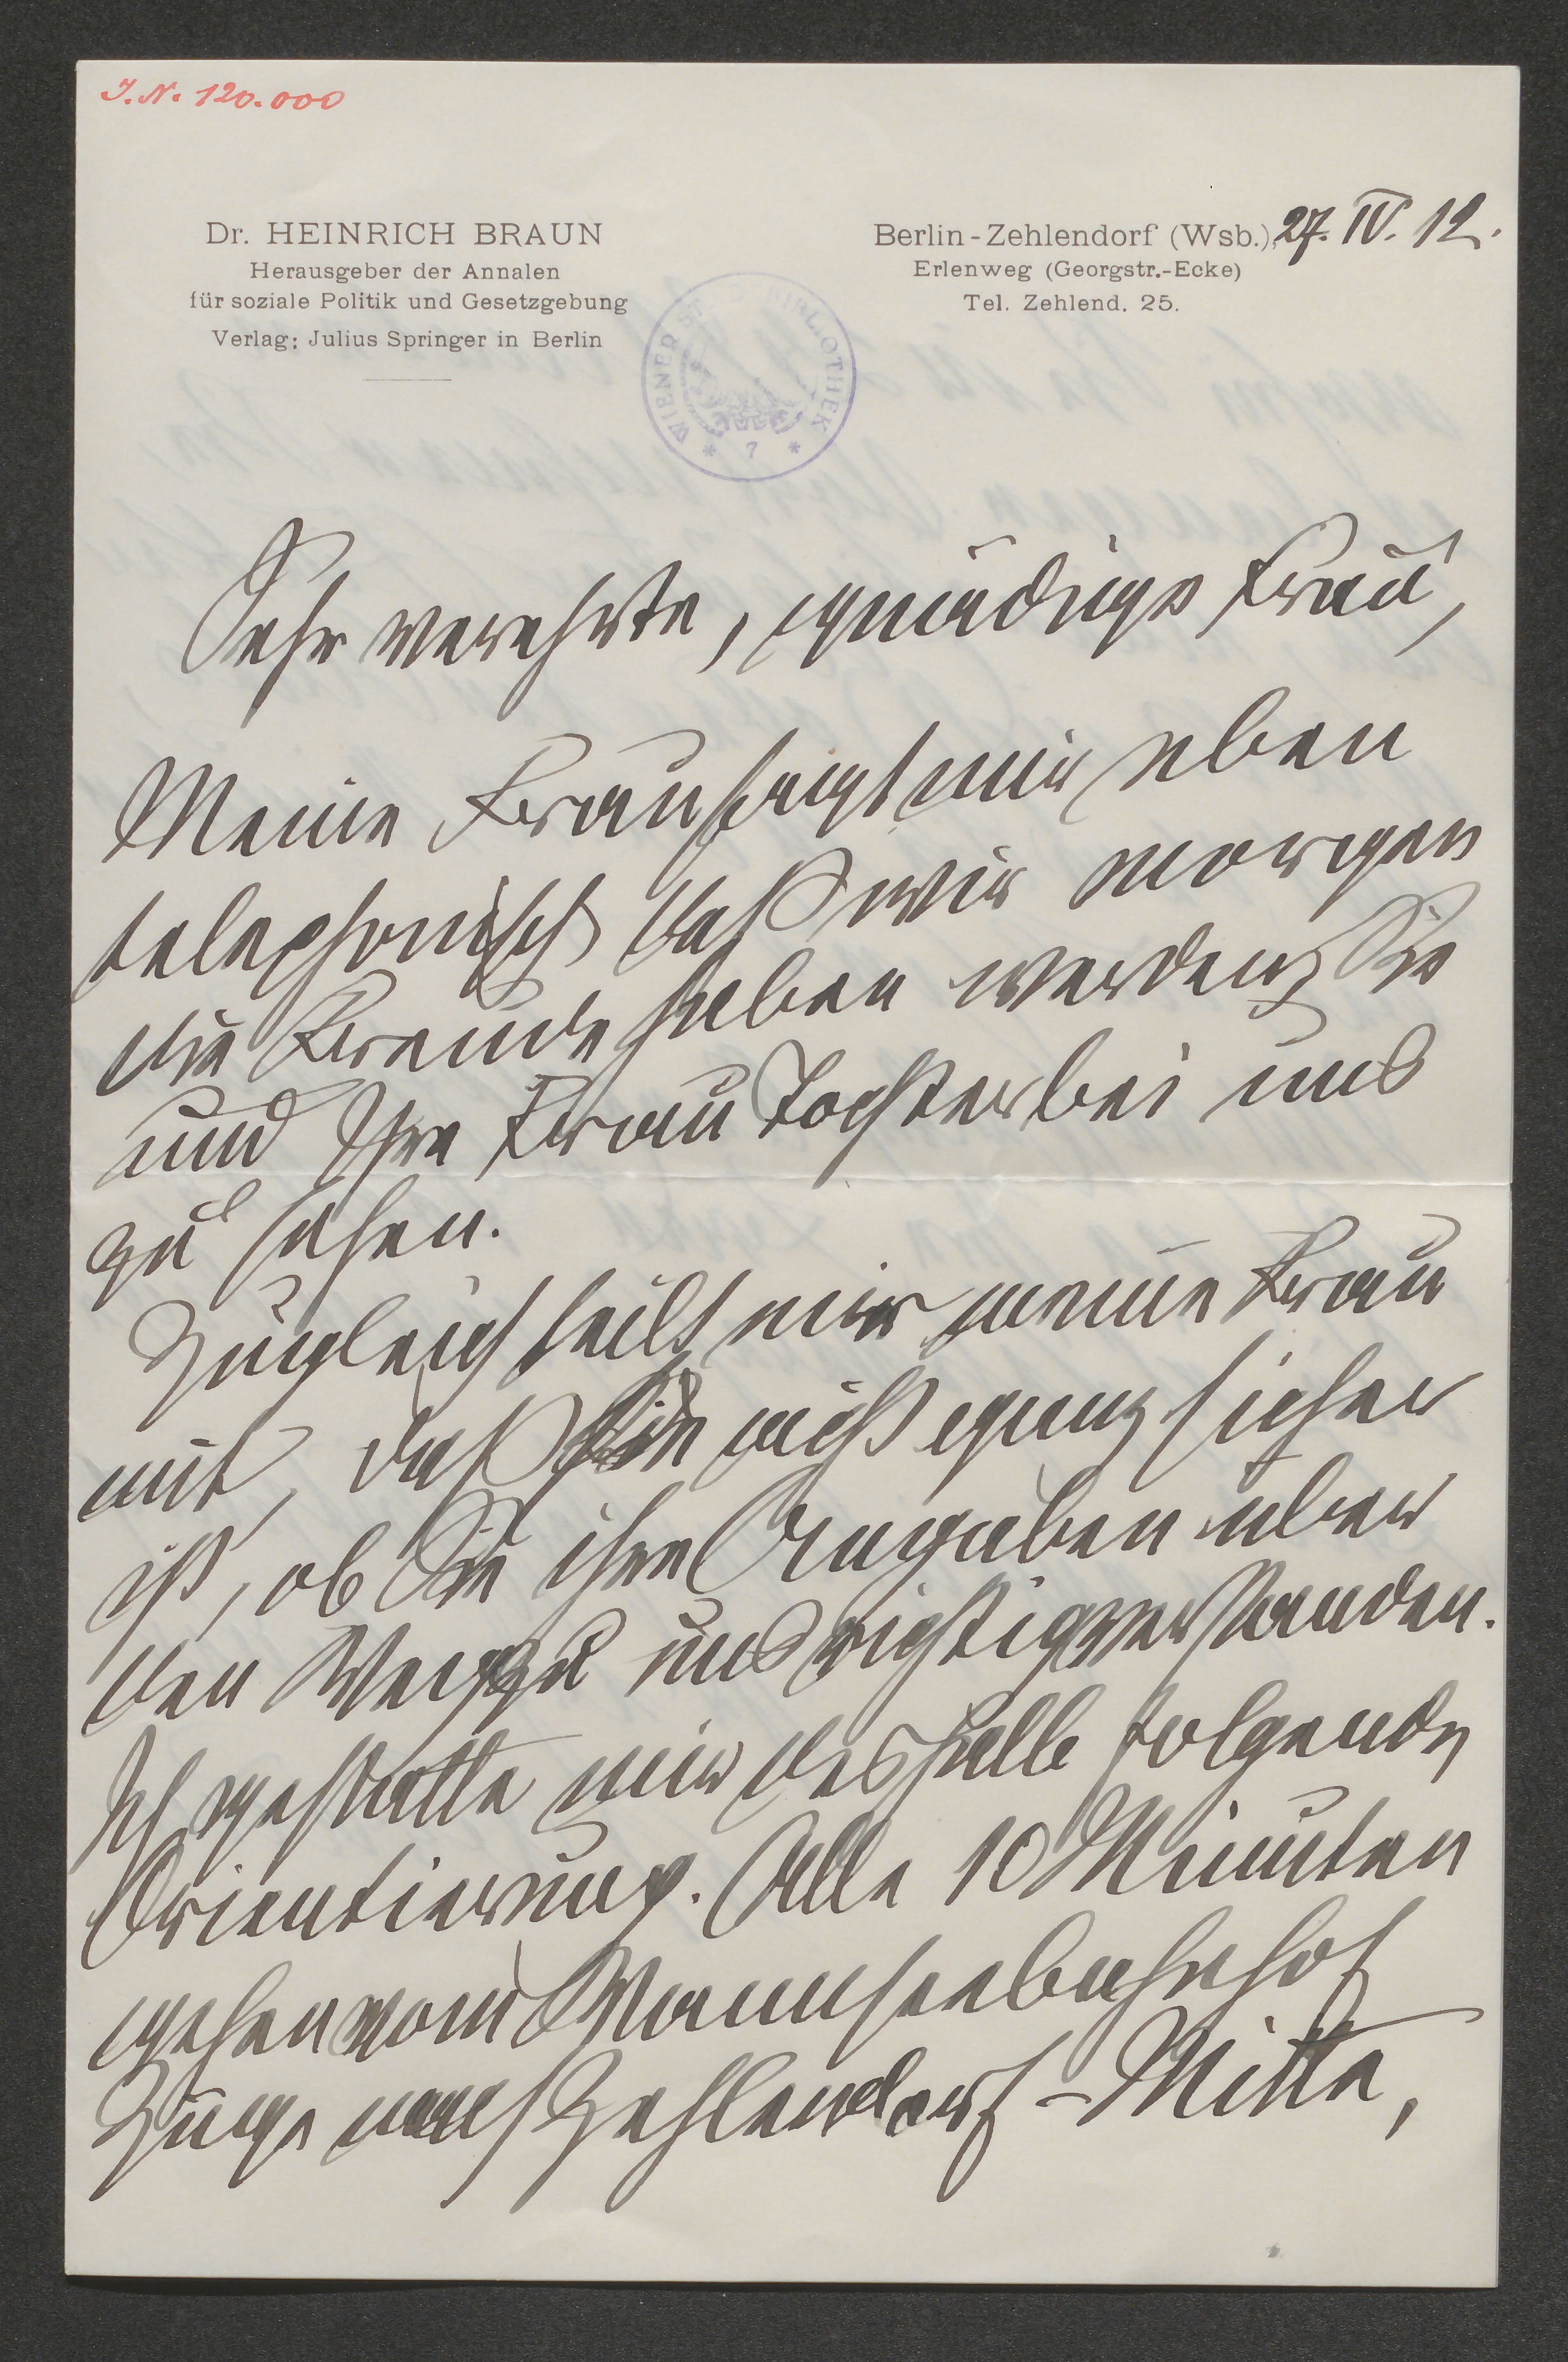 I.N. 120.000
Dr. HEINRICH BRAUN
Herausgeber der Annalen
für soziale Politik und Gesetzgebung
Verlag: Julius Springer in Berlin
Berlin-Zehlendorf (Wsb.), 27. IV. 12.
Erlenweg (Georgstr.-Ecke)
Tel. Zehlend. 25.
WIENER STADTBIBLIOTHEK
* 7 *
Sehr verehrte, gnädige Frau,
Meine Frau sagt mir eben
telephonisch daß wir morgen
die Freude haben werden, Sie
und Ihre Frau Tochter bei uns
zu sehen.
Zugleich teilt mir meine Frau
mit, daß sie nicht ganz sicher
ist, ob Sie ihre Angaben über
den Weg zu uns richtig verstanden.
Ich gestatte mir deshalb folgende
Orientierung. Alle 10 Minuten
gehen vom Wannseebahnhof
Züge nach Zehlendorf-Mitte,